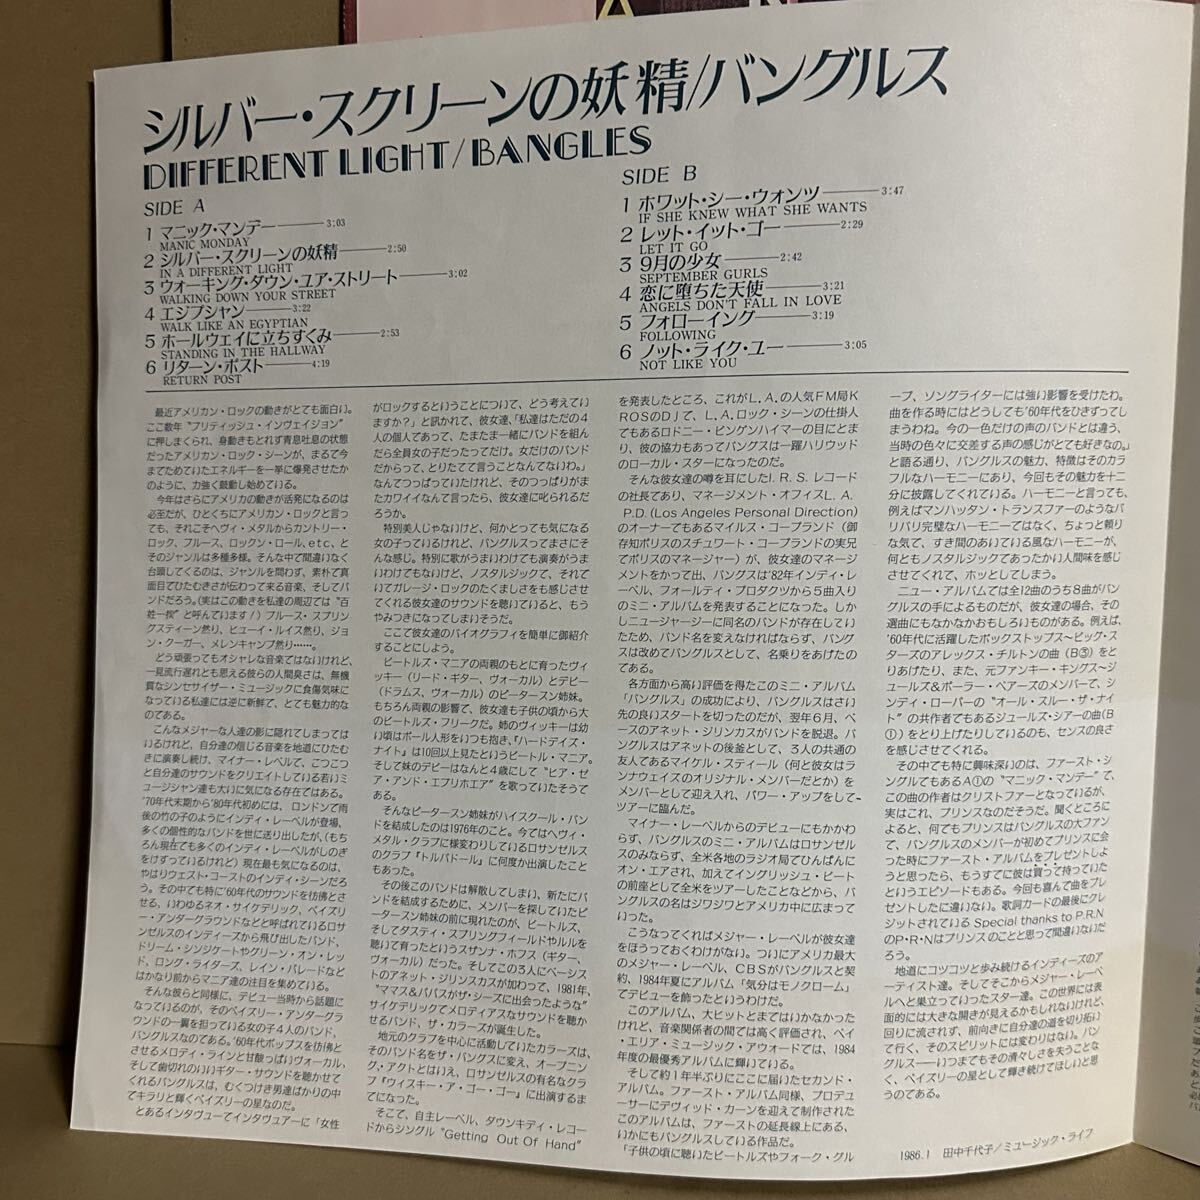 シルバー・スクリーンの妖精/バングルス
DIFFERENT LIGHT/BANGLES
SIDE A
1 マニック・マンデー 3:03
MANIC MONDAY
2 シルバー・スクリーンの妖精 2:50
IN A DIFFERENT LIGHT
3 ウォーキング・ダウン・ユア・ストリート 3:02
WALKING DOWN YOUR STREET
4 エジプシャン 3:22
WALK LIKE AN EGYPTIAN
5 ホールウェイに立ちすくみ 2:53
STANDING IN THE HALLWAY
6 リターン・ポスト 4:19
RETURN POST
SIDE B
1 ホワット・シー・ウォンツ 3:47
IF SHE KNEW WHAT SHE WANTS
2 レット・イット・ゴー 2:29
LET IT GO
3 9月の少女 2:42
SEPTEMBER GURLS
4 恋に堕ちた天使 3:21
ANGELS DON'T FALL IN LOVE
5 フォローイング 3:19
FOLLOWING
6 ノット・ライク・ユー 3:05
NOT LIKE YOU
最近アメリカン・ロックの動きがとても面白い。
ここ数年“ブリティッシュ・インヴェイジョン”
に押しまくられ、身動きもとれず青息吐息の状態
だったアメリカン・ロック・シーンが、まるで今
までためていたエネルギーを一挙に爆発させたか
のように、力強く鼓動し始めている。
今年はさらにアメリカの動きが活発になるのは
必至だが、ひとくちにアメリカン・ロックと言っ
ても、それこそヘヴィ・メタルからカントリー・
ロック、ブルース、ロックン・ロール、etc、と
そのジャンルは多種多様。そんな中で間違いなく
台頭してくるのは、ジャンルを問わず、素朴で真
面目でひたむきさが伝わって来る音楽、そしてバ
ンドだろう。(実はこの動きを私達の周辺では“百
姓一揆”と呼んでいます！) ブルース・スプリン
グスティーン然り、ヒューイ・ルイス然り、ジョ
ン・クーガー、メレンキャンプ然り……。
どう頑張ってもオシャレな音楽ではないけれど、
一見流行遅れとも思える彼らの人間臭さは、無機
質なシンセサイザー・ミュージックに食傷気味に
なっている私達には逆に新鮮で、とても魅力的な
のである。
こんなメジャーな人達の影に隠れてしまっては
いるけれど、自分達の信じる音楽を地道にひたむ
きに演奏し続け、マイナー・レベルで、こつこつ
と自分達のサウンドをクリエイトしている若いミ
ュージシャン達も大いに気になる存在ではある。
'70年代末期から'80年代初めには、ロンドンで雨
後の竹の子のようにインディ・レーベルが登場、
多くの個性的なバンドを世に送り出したが、(もち
ろん現在でも多くのインディ・レーベルがしのぎ
をけずっているけれど) 現在最も気になるのは、
やはりウェスト・コーストのインディ・シーンだろ
う。その中でも特に'60年代のサウンドを彷彿とさ
せる、いわゆるネオ・サイケデリック、ペイズリ
ー・アンダーグラウンドなどと呼ばれているロサ
ンゼルスのインディーズから飛び出したバンド、
ドリーム・シンジケートやグリーン・オン・レッ
ド、ロング・ライダーズ、レイン・パレードなど
はかなり前からマニア達の注目を集めている。
そんな彼らと同様に、デビュー当時から話題に
なっているのが、そのペイズリー・アンダーグラ
ウンドの一翼を担っている女の子4人のバンド、
バングルスなのである。'60年代ポップスを彷彿と
させるメロディ・ラインと甘酸っぱいヴォーカル、
そして歯切れのいいギター・サウンドを聴かせて
くれるバングルスは、むくつけき男達ばかりの中
でキラリと輝くペイズリーの星なのだ。
とあるインタヴューでインタヴュアーに「女性
がロックするということについて、どう考えてい
ますか？」と訊かれて、彼女達、「私達はただの4
人の個人であって、たまたま一緒にバンドを組ん
だら全員女の子だったってだけ。女だけのバンド
だからって、とりたてて言うことなんてないわ。」
なんてつっぱっていたけれど、そのつっぱりがま
たカワイイなんて言ったら、彼女達に叱られるだ
ろうか。
特別美人じゃないけど、何かとっても気になる
女の子っているけれど、バングルスってまさにそ
んな感じ。特別に歌がうまいわけでも演奏がうま
いわけでもないけど、ノスタルジックで、それで
いてガレージ・ロックのたくましさをも感じさせ
てくれる彼女達のサウンドを聴いていると、もう
やみつきになってしまいそうだ。
ここで彼女達のバイオグラフィを簡単に御紹介
することにしよう。
ビートルズ・マニアの両親のもとに育ったヴィ
ッキー（リード・ギター、ヴォーカル）とデビー
（ドラムス、ヴォーカル）のピータースン姉妹。
もちろん両親の影響で、彼女達も子供の頃から大
のビートルズ・フリークだ。姉のヴィッキーは幼
い頃はポール人形をいつも抱き、「ハードデイズ・
ナイト」は10回以上見たというビートル・マニア。
そして妹のデビーはなんと4歳にして“ヒア・ゼ
ア・アンド・エブリホエア”を歌っていたそうで
ある。
そんなピータースン姉妹がハイスクール・バン
ドを結成したのは1976年のこと。今ではヘヴィ・
メタル・クラブに様変わりしているロサンゼルス
のクラブ『トルバドール』に何度か出演したこと
もあった。
その後このバンドは解散してしまい、新たにバ
ンドを結成するために、メンバーを探していたピ
ータースン姉妹の前に現れたのが、ビートルス、
そしてダスティ・スプリングフィールドやルルを
聴いて育ったというスザンナ・ホフス（ギター、
ヴォーカル）だった。そしてこの3人にベーシス
トのアネット・ジリンスカスが加わって、1981年、
“ママス&パパスがザ・シーズに出会ったような”
サイケデリックでメロディアスなサウンドを聴か
せるバンド、ザ・カラーズが誕生した。
地元のクラブを中心に活動していたカラーズは、
そのバンド名をザ・バングスに変え、オープニン
グ・アクトとはいえ、ロサンゼルスの有名なクラ
ブ『ウィスキー・ア・ゴー・ゴー』に出演するま
でになった。
そこで、自主レーベル、ダウンキディ・レコー
ドからシングル“Getting Out Of Hand”
を発表したところ、これがL.A.の人気FM局K
ROSのDJで、L.A.ロック・シーンの仕掛人
でもあるロドニー・ビンゲンハイマーの目にとま
り、彼の協力もあってバングスは一躍ハリウッド
のローカル・スターになったのだ。
そんな彼女達の噂を耳にしたI.R.S.レコード
の社長であり、マネージメント・オフィスL.A.
P.D.(Los Angeles Personal Direction)
のオーナーでもあるマイルス・コープランド（御
存知ポリスのスチュワート・コープランドの実兄
でポリスのマネージャー）が、彼女達のマネージ
メントをかって出、バングスは'82年インディ・レ
ーベル、フォールティ・プロダクツから5曲入り
のミニ・アルバムを発表することになった。しか
しニュージャージーに同名のバンドが存在してい
たため、バンド名を変えなければならず、バング
スは改めてバングルスとして、名乗りをあげたの
である。
各方面から高い評価を得たこのミニ・アルバム
「バングルス」の成功により、バングルスはさい
先の良いスタートを切ったのだが、翌年6月、ベ
ースのアネット・ジリンカスがバンドを脱退。バ
ングルスはアネットの後釜として、3人の共通の
友人であるマイケル・スティール（何と彼女はラ
ンナウェイスのオリジナル・メンバーだとか）を
メンバーとして迎え入れ、パワー・アップをして
ツアーに臨んだ。
マイナー・レーベルからのデビューにもかかわ
らず、バングルスのミニ・アルバムはロサンゼル
スのみならず、全米各地のラジオ局でひんぱんに
オン・エアされ、加えてイングリッシュ・ビート
の前座として全米をツアーしたことなどから、バ
ングルスの名はジワジワとアメリカ中に広まって
いった。
こうなってくればメジャー・レーベルが彼女達
をほうっておくわけがない。ついにアメリカ最大
のメジャー・レーベル、CBSがバングルスと契
約、1984年夏にアルバム「気分はモノクローム」
でデビューを飾ったというわけだ。
このアルバム、大ヒットとまではいかなかった
けれど、音楽関係者の間では高く評価され、ベイ
・エリア・ミュージック・アウォードでは、1984
年度の最優秀アルバムに輝いている。
そして約1年半ぶりにここに届いたセカンド・
アルバム。ファースト・アルバム同様、プロデュ
ーサーにデヴィッド・カーンを迎えて制作された
このアルバムは、ファーストの延長線上にある、
いかにもバングルスしている作品だ。
「子供の頃に聴いたビートルズやフォーク・グル
ープ、ソングライターには強い影響を受けたわ。
曲を作る時にはどうしても'60年代をひきずってし
まうわね。今の一色だけの声のバンドとは違う、
当時の色々に交差する声の感じがとても好きなの。」
と語る通り、バングルスの魅力、特徴はそのカラ
フルなハーモニーにあり、今回もその魅力を十二
分に披露してくれている。ハーモニーと言っても、
例えばマンハッタン・トランスファーのようなバ
リバリ完璧なハーモニーではなく、ちょっと頼り
な気で、すき間のあいている風なハーモニーが、
何ともノスタルジックであったかい人間味を感じ
させてくれて、ホッとしてしまう。
ニュー・アルバムでは全12曲のうち8曲がバン
グルスの手によるものだが、彼女達の場合、その
選曲にもなかなかおもしろいものがある。例えば、
'60年代に活躍したボックストップス〜ビッグ・ス
ターズのアレックス・チルトンの曲（B③）をと
りあげたり、また、元ファンキー・キングス〜ジ
ュールズ&ポーラー・ベアーズのメンバーで、シ
ンディ・ローパーの“オール・スルー・ザ・ナイ
ト”の共作者でもあるジュールズ・シアーの曲（B
①）をとり上げたりしているのも、センスの良さ
を感じさせてくれる。
その中でも特に興味深いのは、ファースト・シ
ングルでもあるA①の“マニック・マンデー”で、
この曲の作者はクリストファーとなっているが、
実はこれ、プリンスなのだそうだ。聞くところに
よると、何でもプリンスはバングルスの大ファン
で、バングルスのメンバーが初めてプリンスに会
った時にファースト・アルバムをプレゼントしよ
うと思ったら、もうすでに彼は買って持っていた
というエピソードもある。今回も喜んで曲をプレ
ゼントしたに違いない。歌詞カードの最後にクレ
ジットされている Special thanks to P.R.N
のP・R・Nはプリンスのことと思って間違いないだ
ろう。
地道にコツコツと歩み続けるインディーズのアー
ティスト達。そしてそこからメジャー・レーベ
ルへと巣立っていったスター達。この世界には表
面的には大きな開きが見えるかもしれないけれど、
回りに流されず、前向きに自分達の道を切り拓い
て行く、そのスピリットには変わりはない。バン
グルス——いつまでもその清々しさを失うことな
く、ペイズリーの星として輝き続けてほしいと思
うのである。
1986.1 田中千代子／ミュージック・ライフ